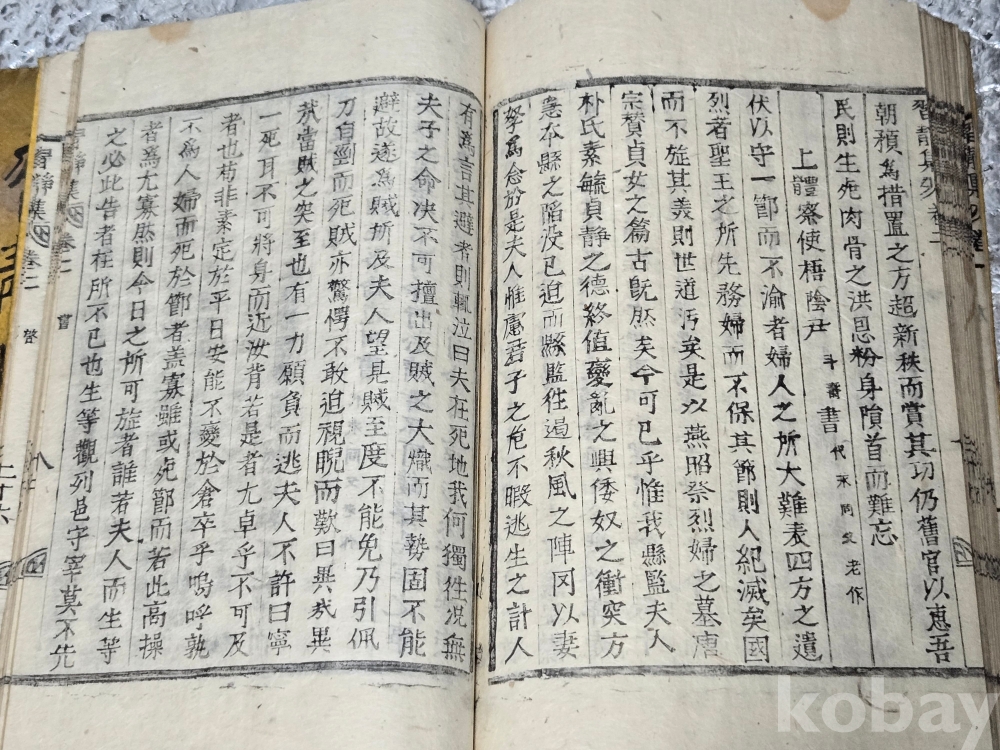 朝積爲措置之方超新秩而賞其功仍舊官以惠吾
民則生死肉骨之洪恩粉身隕首而難忘
上體察使梧陰尹斗壽書
伏以守一節而不渝者婦人之所大難表四方之遺
烈者聖王之所先務婦而不保其節則人紀滅矣國
而不旌其義則世道汚矣是以燕昭祭烈婦之墓唐
宗贊貞女之篇古旣然矣今可已乎惟我縣監夫人
朴氏素毓貞静之德終值變亂之興倭奴之衝突方
急本縣之陷没已迫而縣監徃過秋風之陣罔以妻
孥爲念於是夫人惟慮君子之危不暇逃生之計人
有爲言其避者則輒泣曰夫在死地我何獨徃况無
夫子之命决不可擅出及賊之大熾而其勢固不能
避故遂爲賊所及夫人望見賊至度不能免乃引佩
刀自剄而死賊亦驚愕不敢迫視睨而歎曰異哉異
哉當賊之突至也有一力願負而逃夫人不許曰寧
一死耳不可將身而近汝背若是者尤卓乎不可及
者也苟非素定於平日安能不變於倉卒乎嗚呼孰
不爲人婦而死於節者盖寡雖或死節而若此高操
者爲尤寡然則今日之所可旌者誰若夫人而生等
之必此告者在所不已也生等觀列邑守宰莫不先
kobay